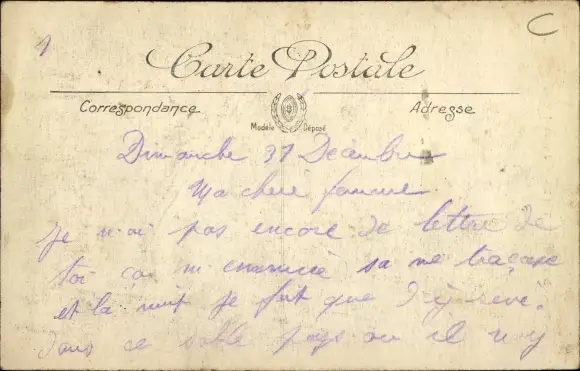 1
C
Carte Postale
Correspondance
Adresse
Modèle Déposé
Dimanche 31 Décembre
Ma cheré famme
Je n'ai pas encore de lettre de
toi ça m sa me traçase
et la nuit je fait que d'y revé.
Dans ce sable pays ou il n'y